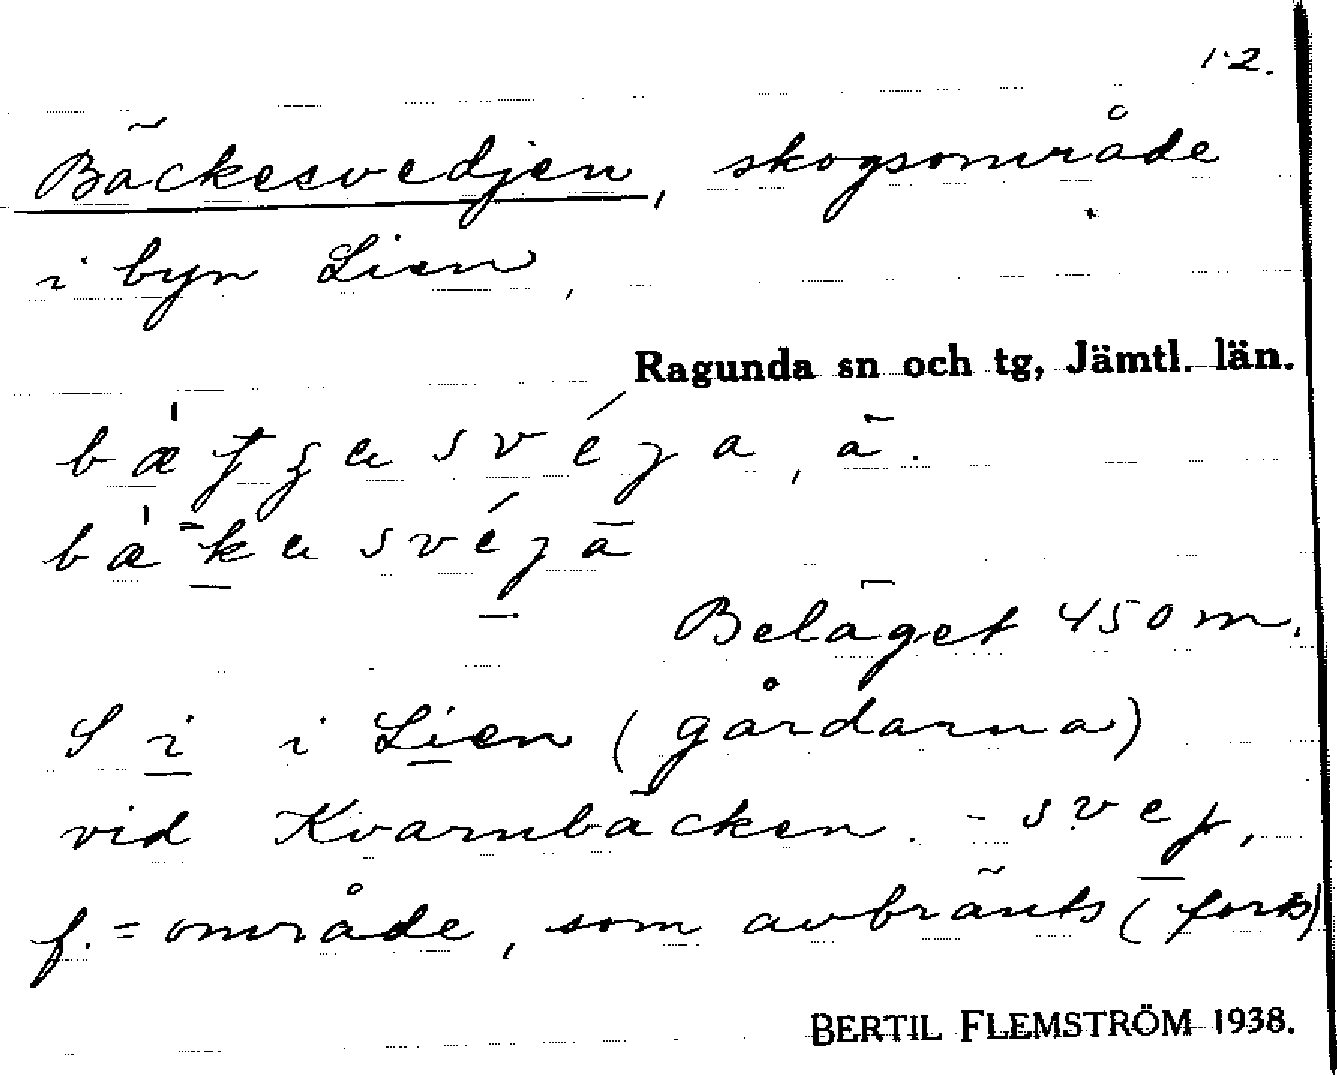 1·2.
Bäckesvedjen, skogsområde
i byn Lien,
Ragunda sn och tg, Jämtl. län.
Beläget 450 m.
S i i Lien (gårdarna)
vid Kvarnbäcken. - svej,
f. = område, som avbränts (forts)
BERTIL FLEMSTRÖM 1938.